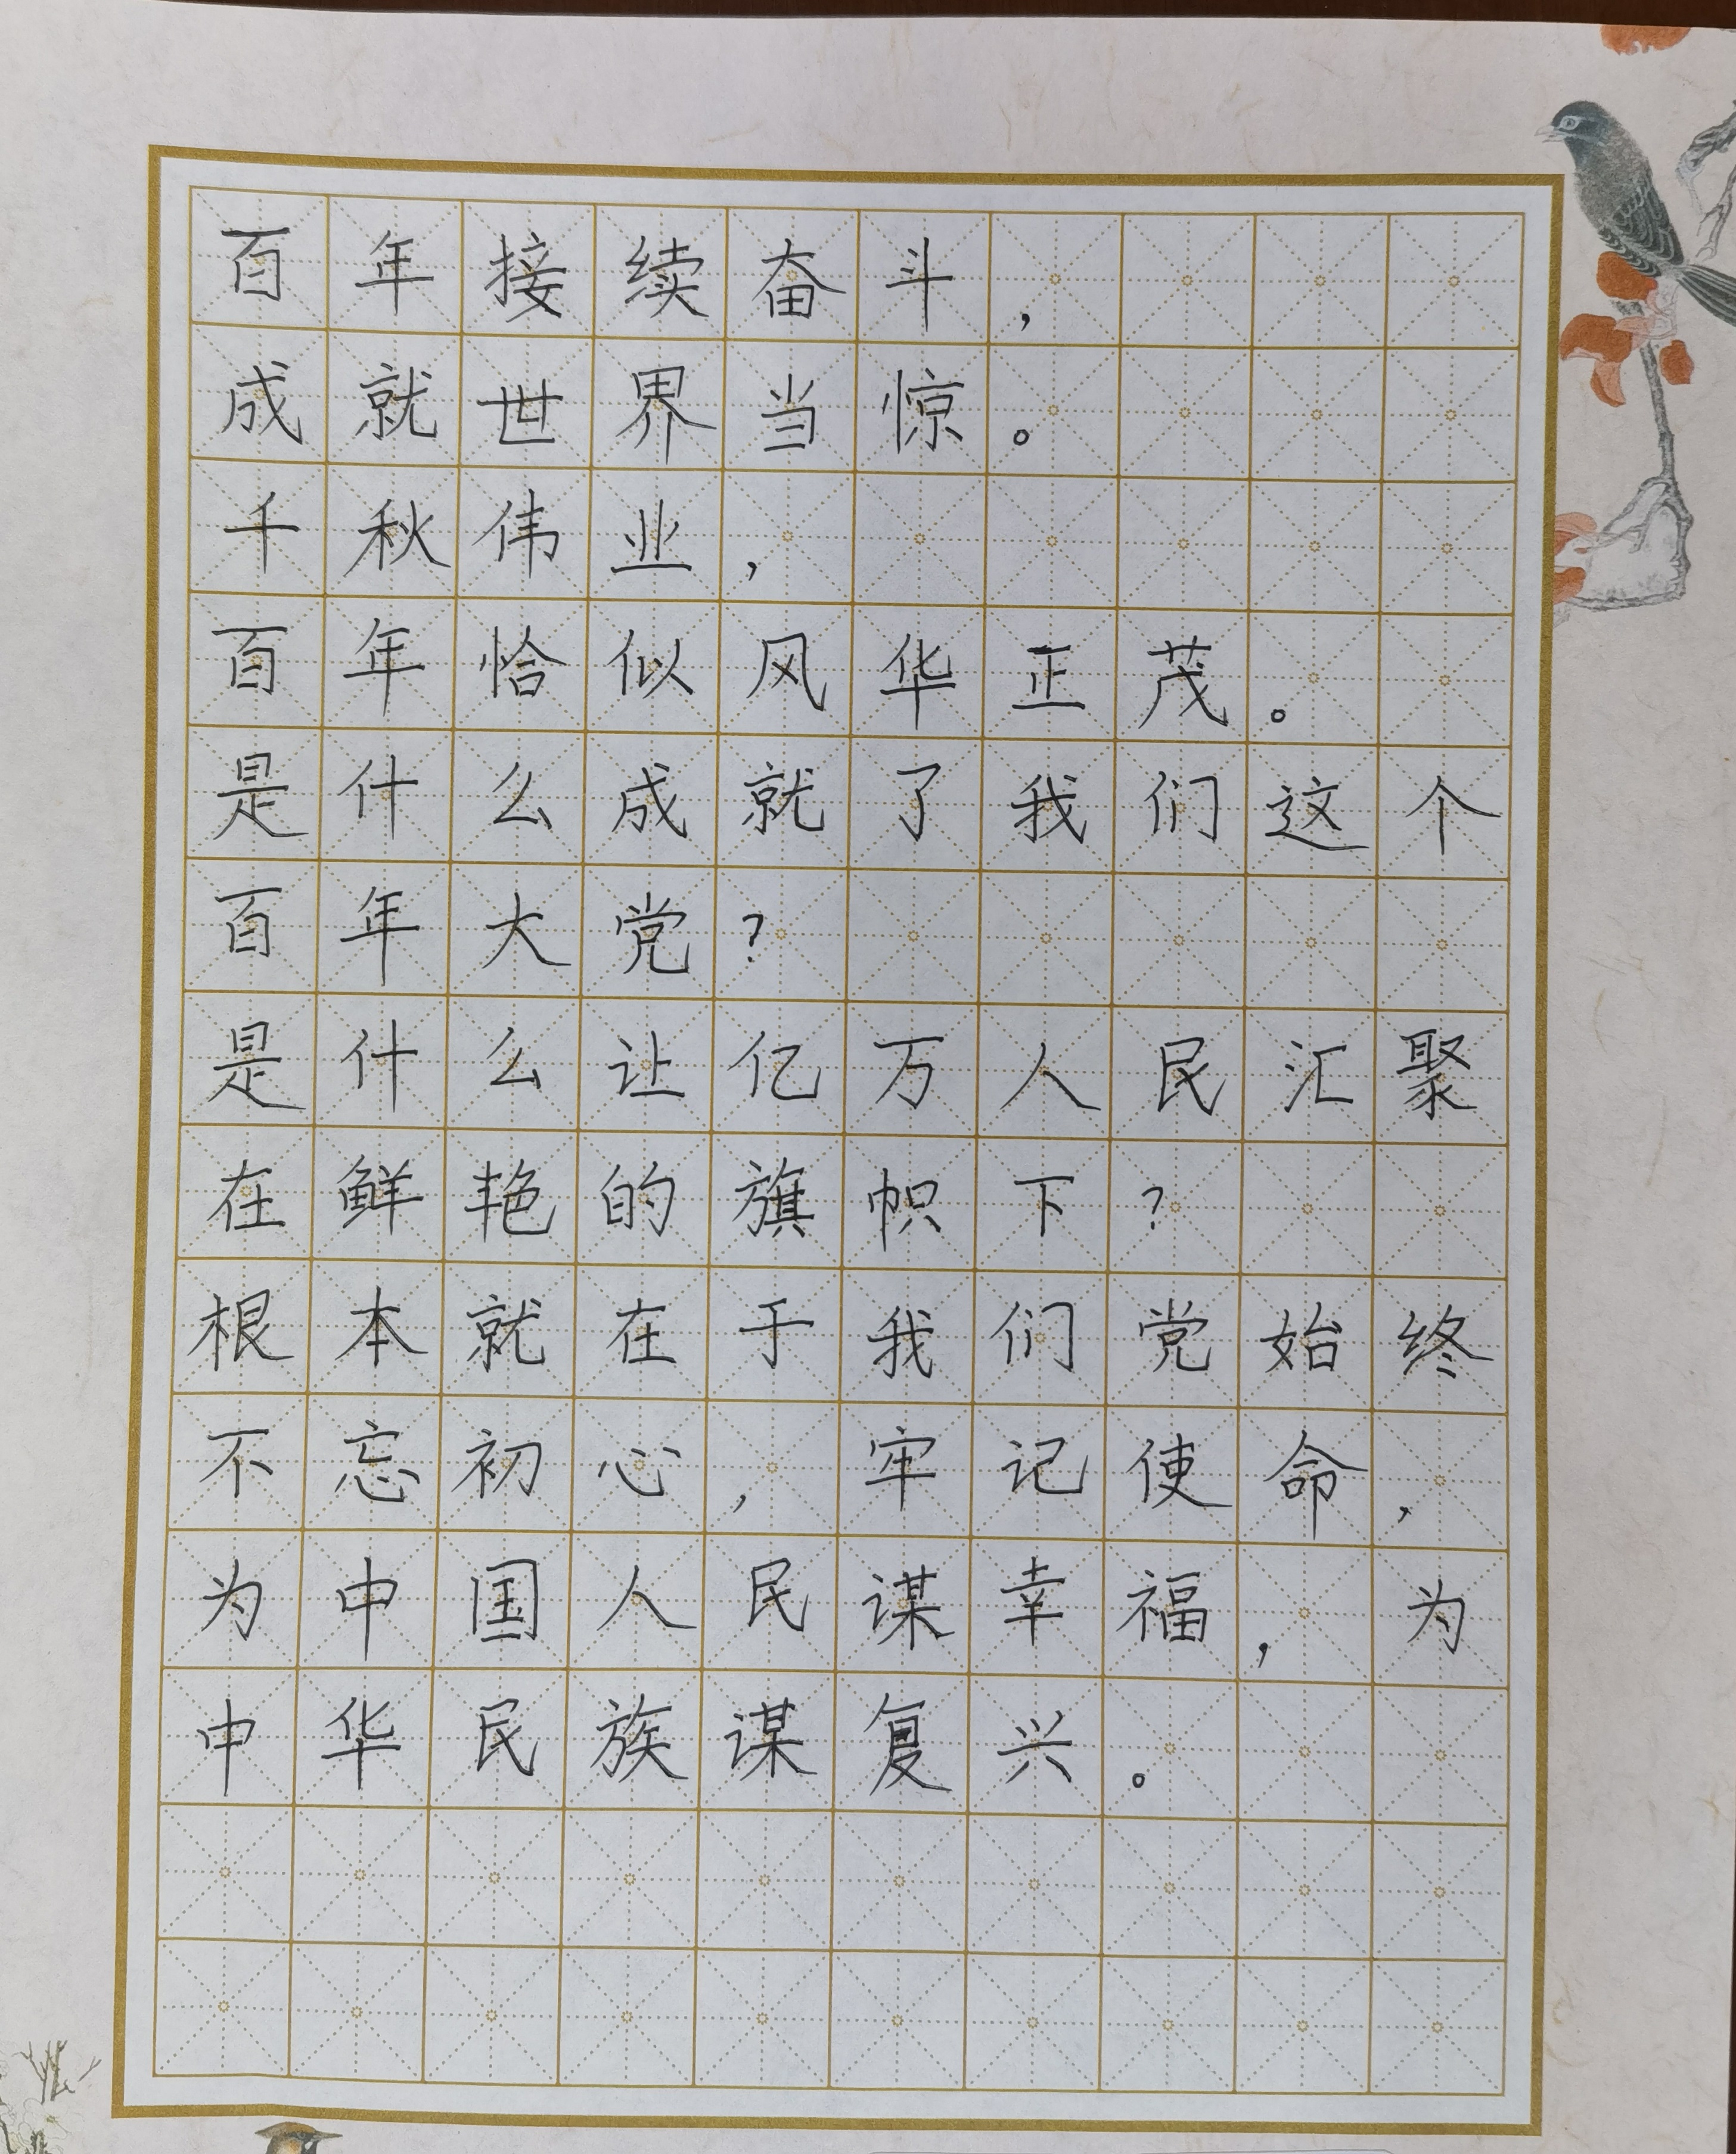 百年接续奋斗，
成就世界当惊。
千秋伟业，
百年恰似风华正茂。
是什么成就了我们这个
百年大党？
是什么让亿万人民汇聚
在鲜艳的旗帜下？
根本就在于我们党始终
不忘初心，牢记使命，
为中国人民谋幸福，为
中华民族谋复兴。